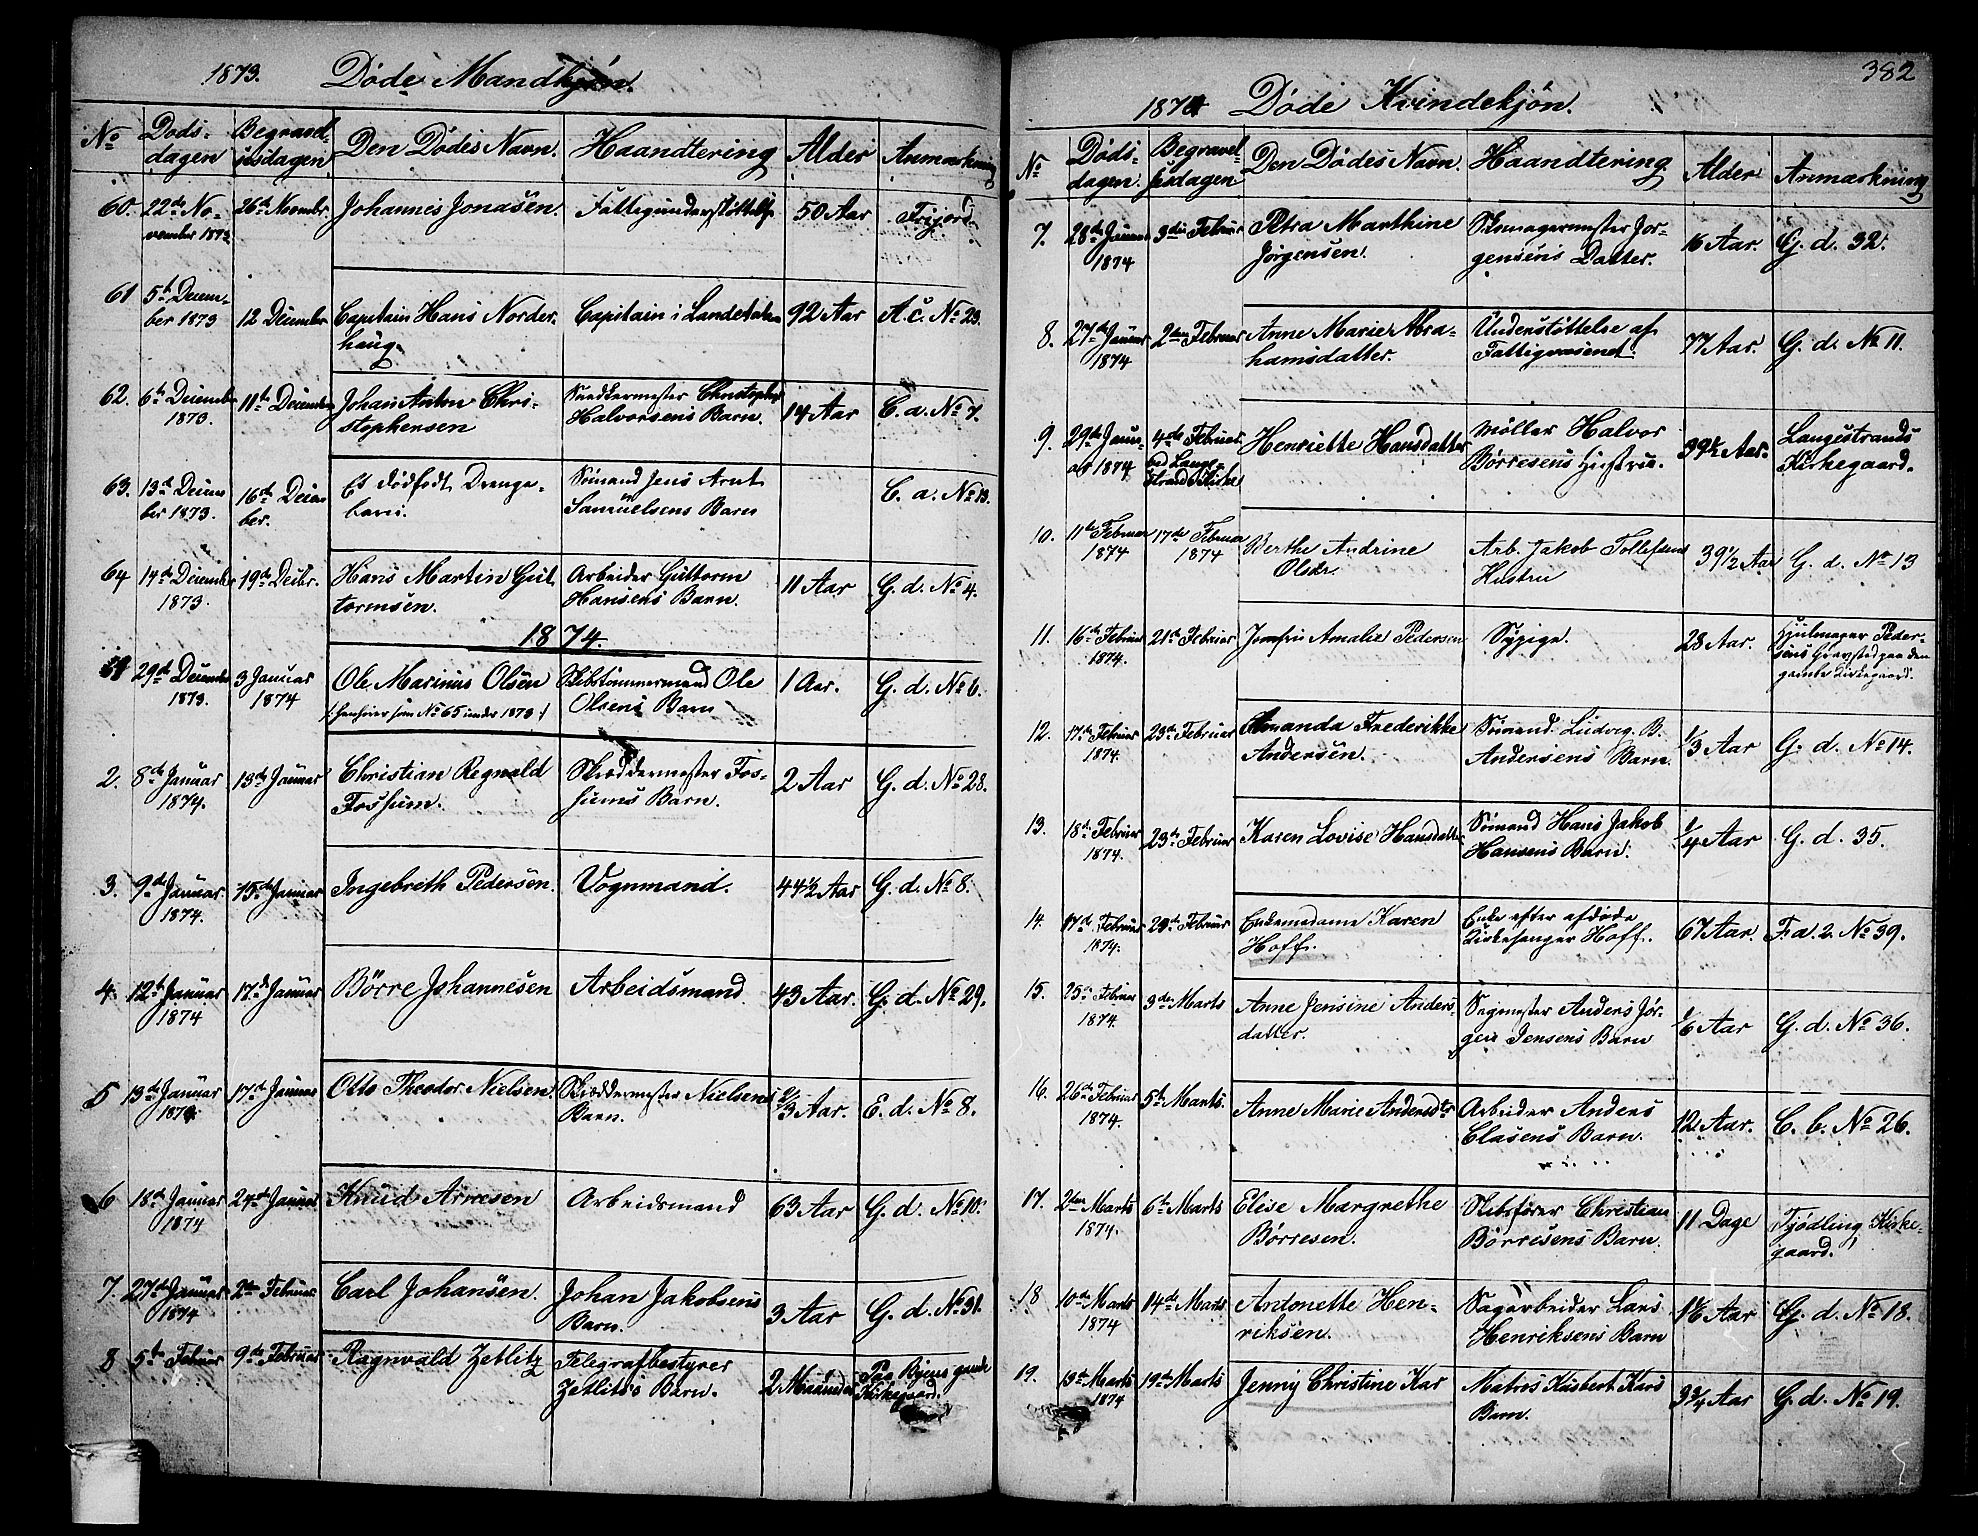 1873. Døde Mandkjøn.
No Døds-dagen Begravel-sesdagen Den Dødes Navn. Haandtering Alder Anmærkning
60. 22de No- 26de Novembr. Johannes Jonasen. Fattigunderstøttelse 50 Aar Frijord.
vember 1873
61 5te Decem- 12 December Capitain Hans Norder- Capitain i Landetaten 92 Aar A.c. No 23.
ber 1873 haug.
62. 6te December 11te December Johan Anton Chri- Snedkermester Christopher 14 Aar C. a. No 7.
1873. stophersen Halvorsens Barn.
63. 13de Decem- 16de Decem- Et dødfødt Drenge- Sømand Jens Arnt C. a. No 13.
ber 1873. ber. barn. Samuelsens Barn
64 14de December 19de Decbr. Hans Martin Gut- Arbeider Guttorm 11 Aar G. d. No 4.
1873. tormsen. Hansens Barn.
1874.
29de December 3 Januar Ole Marinus Olsen Skibstømmermand Ole 1 Aar. G. d. No 6.
1873. 1874 /: henhører som No 65 under 1873 :/ Olsens Barn
2. 8de Januar 13de Januar Christian Regnald Skræddermester Fos- 2 Aar G. d. No 28.
1874. Fossum. sums Barn.
3. 9de Januar 15de Januar Ingebreth Pedersen. Vognmand. 44½ Aar G. d. No 8.
1874.
4. 12te Januar 17de Januar Børre Johannesen Arbeidsmand 43 Aar. G. d. No 29.
1874
5 13de Januar 17de Januar Otto Theodor Nielsen. Skræddermester Nielsens 2/3 Aar. E. d. No 8.
1874. Barn.
6 18de Januar 24de Januar Knud Arnesen Arbeidsmand 63 Aar G. d. No 10.
1874
7. 27de Januar 2den Februar Carl Johansen. Johan Jakobsens 3 Aar G. d. No 31.
1874 Barn.
8 5te Februar 9de Februar Ragnvald Zetlitz Telegrafbestyrer 2 Maaneder Paa Byens gamle
Zetlitz's Barn. Kirkegaard.
382
1874 Døde Kvindekjøn.
No Døds-dagen. Begravel-sesdagen Den Dødes Navn. Haandtering. Alder Anmærkning
7. 28de Januar 3die Februar Petra Marthine Skomagermester Jør- 16 Aar. G. d. 32.
1874 Jørgensen. gensens Datter.
8. 27de Januar 2den Februar Anne Marie Abra- Understøttelse af 77 Aar. G. d. No 11.
1874 hamsdatter. Fattigvæsenet.
9. 29de Janu- 4de Februar Henriette Hansdatter Møller Halvor 39½ Aar. Langestrands
ar 1874 ved Lange- Børresens Hustru. Kirkegaard.
strands Kirke
10. 11te Februar 17de Februar Berthe Andrine Arb. Jakob Tollefsens 39½ Aar G. d. No 13
1874 1874 Olsdr. Hustru
11. 16de Februar 21de Februar Jomfru Amalie Pedersen Sypige. 28 Aar. Hjulmager Peder-
1874. sens Gravsted paa den
gamle Kirkegaard.
12. 17de Februar 23de Februar Amanda Frederikke Sømand Ludvig B. 1/3 Aar G. d. No 14.
1874. Andersen. Andersens Barn.
13. 18de Februar 23de Februar Karen Lovise Hansdatter Sømand Hans Jakob 1/4 Aar G. d. 35.
1874. Hansens Barn.
14. 17de Februar Februar Enkemadame Karen Enke efter afdøde 67 Aar. F. a. 2. No 39.
1874. Hoff. Kirkesanger Hoff.
15. 25de Februar 3die Marts Anne Jensine Anders- Sagmester Anders Jør- 1/6 Aar G. d. No 36.
1874. datter. gen Jensens Barn
16. 26de Februar 5te Marts. Anne Marie Andersdtr Arbeider Anders 12 Aar. C. b. No 26.
1874. Clasens Barn.
17. 2den Marts 6te Marts Elise Margrethe Skibsfører Christian 11 Dage Tjødling Kirke-
1874. Børresen. Børresens Barn. gaard.
18 10de Marts 14de Marts Antonette Hen- Sagarbeider Lars 1 1/6 Aar G. d. No 18.
1874 riksen. Henriksens Barn
19. 13de Marts 19de Marts Jenny Christine Kar Matros Kasbert Kars 3¾ Aar G. d. No 19.
1874 Barn.